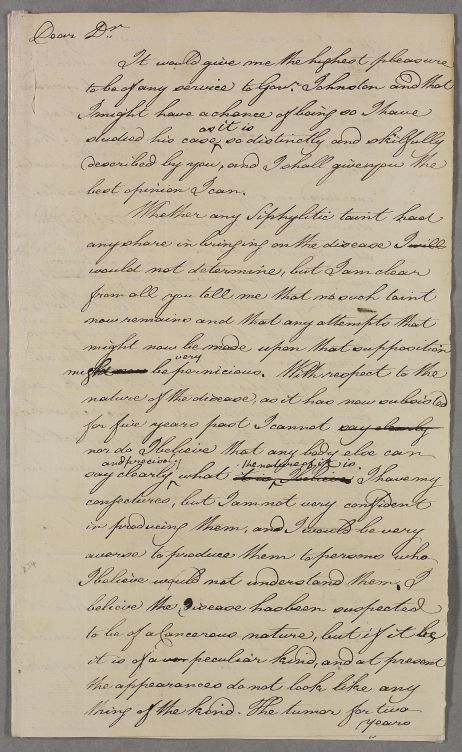 Dear Dr
It would give me the highest pleasure
to be of any service to Govr. Johnston and that
I might have a chance of being so I have
as it is
studied his case, so distinctly and skilfully
described by you, and I shall give you the
best opinion I can.
Whether any Siphylitic taint had
any share in bringing on the disease I will
would not determine, but I am clear
from all you tell me that no such taint
now remains and that any attempts that
might now be made upon that supposition
might be very pernicious. With respect to the
nature of the disease, as it has now subsisted
for five years past I cannot say clearly
nor do I believe that any body else can
and precisely the nature of it is.
say clearly what it is I believe I have my
conjectures, but I am not very confident
in producing them, and I would be very
averse to produce them to persons who
I believe would not understand them. I
believe the Disease has been suspected
to be of a Cancerous nature, but if it be
it is of a peculiar kind, and at present
the appearances do not look like any
thing of the kind. The tumor for two
years